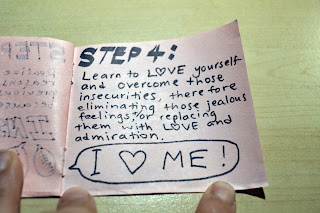 STEP 4:
Learn to LOVE yourself
and overcome those
insecurities, therefore
eliminating those jealous
feelings, or replacing
them with LOVE and
admiration.
I ♡ ME!